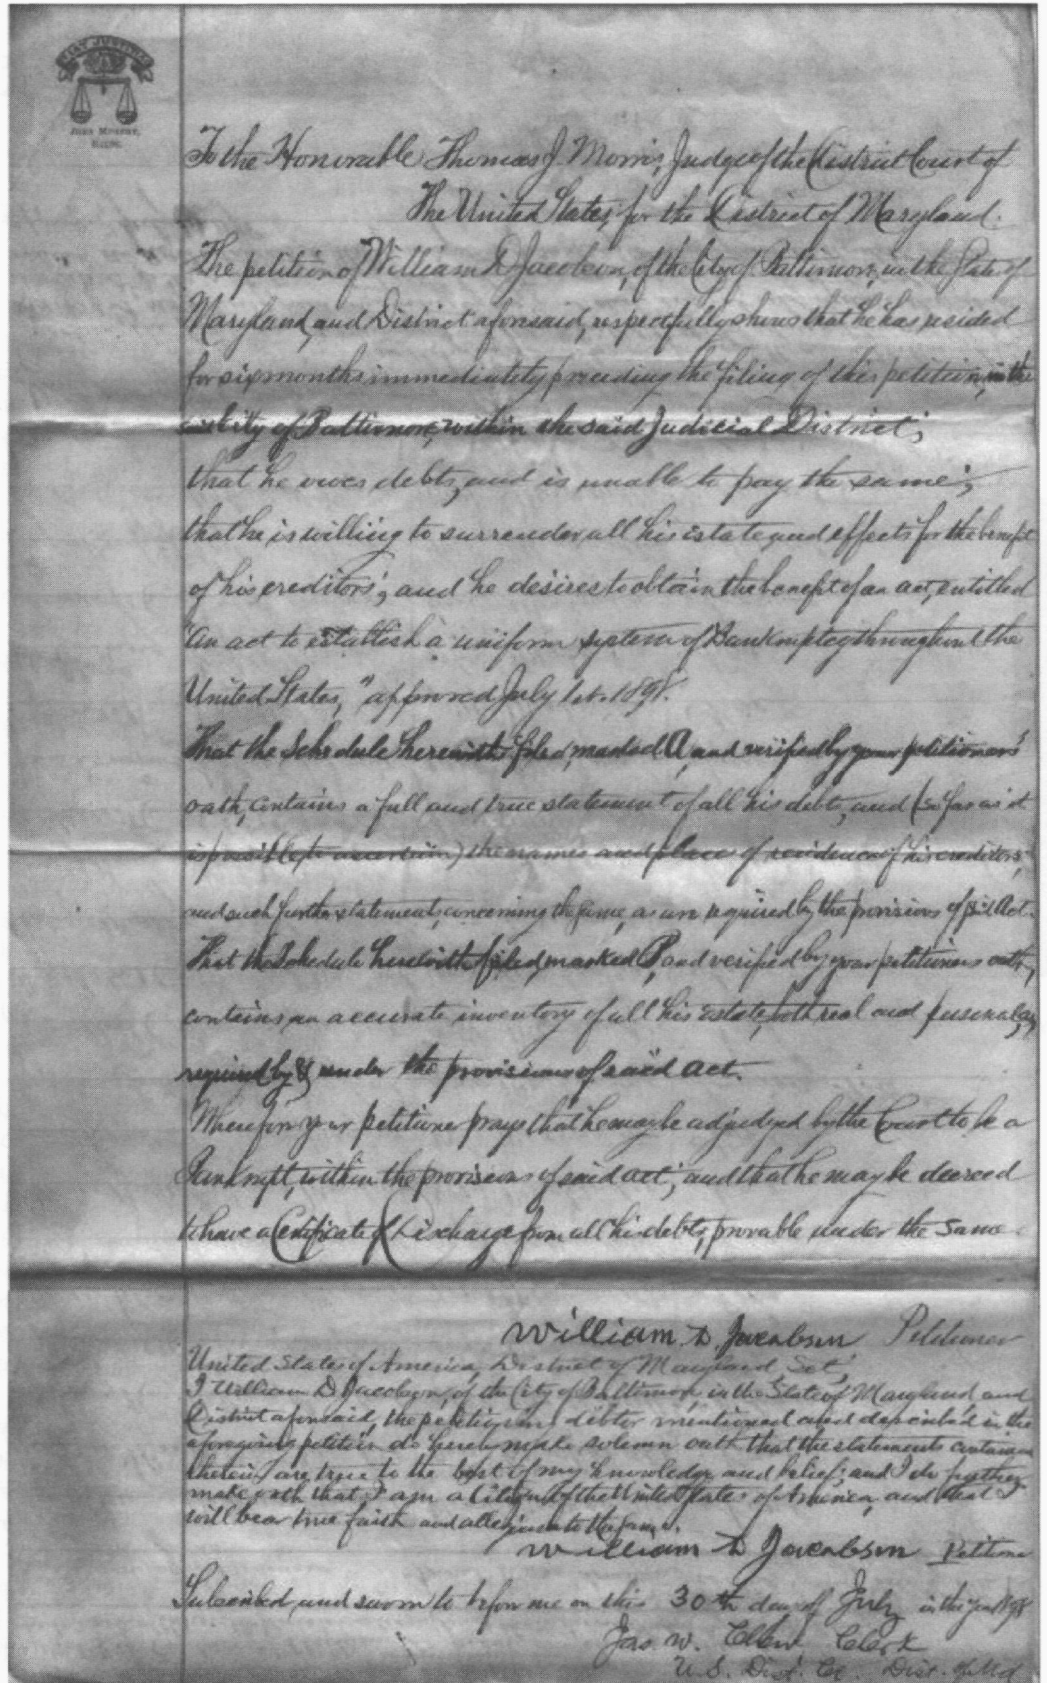 FIAT JUSTITIA
JOHN MURPHY,
BALTO.
To the Honorable Thomas J. Morris, Judge of the District Court of
The United States, for the District of Maryland.
The petition of William D Jacobson, of the City of Baltimore, in the State of
Maryland, and District aforesaid, respectfully shows that he has resided
for six months immediately preceding the filing of this petition, in the
City of Baltimore, within the said Judicial District;
that he owes debts, and is unable to pay the same;
that he is willing to surrender all his estate and effects for the benefit
of his creditors; and he desires to obtain the benefit of an act, entitled
"An act to establish a uniform system of Bankruptcy throughout the
United States," approved July 1st. 1898.
That the Schedule herewith filed, marked A, and verified by your petitioner's
oath, contains a full and true statement of all his debts, and (so far as it
is possible to ascertain) the names and place of residence of his creditors,
and such further statements, concerning the same, as are required by the provisions of said Act.
That the Schedule herewith filed, marked B, and verified by your petitioners oath,
contains an accurate inventory of all his estate, both real and personal, as
required by & under the provisions of said act.
Wherefore your petitioner prays that he may be adjudged by the Court to be a
Bankrupt, within the provisions of said act; and that he may be decreed
to have a Certificate of Discharge from all his debts, provable under the same.
William D. Jacobson Petitioner
United States of America, District of Maryland, Sct,
I William D Jacobson, of the City of Baltimore, in the State of Maryland, and
District aforesaid, the petitioning debtor mentioned and described in the
aforegoing petition do hereby make solemn oath that the statements contained
therein are true to the best of my knowledge and belief; and I do further
make oath that I am a Citizen of the United States of America, and that I
will bear true faith and allegiance to the same.
William D Jacobson Petitioner
Subscribed and sworn to before me on this 30th day of July in the year 1898
Jas. W. Chew Clerk
U.S. Dist. Ct. Dist. of Md